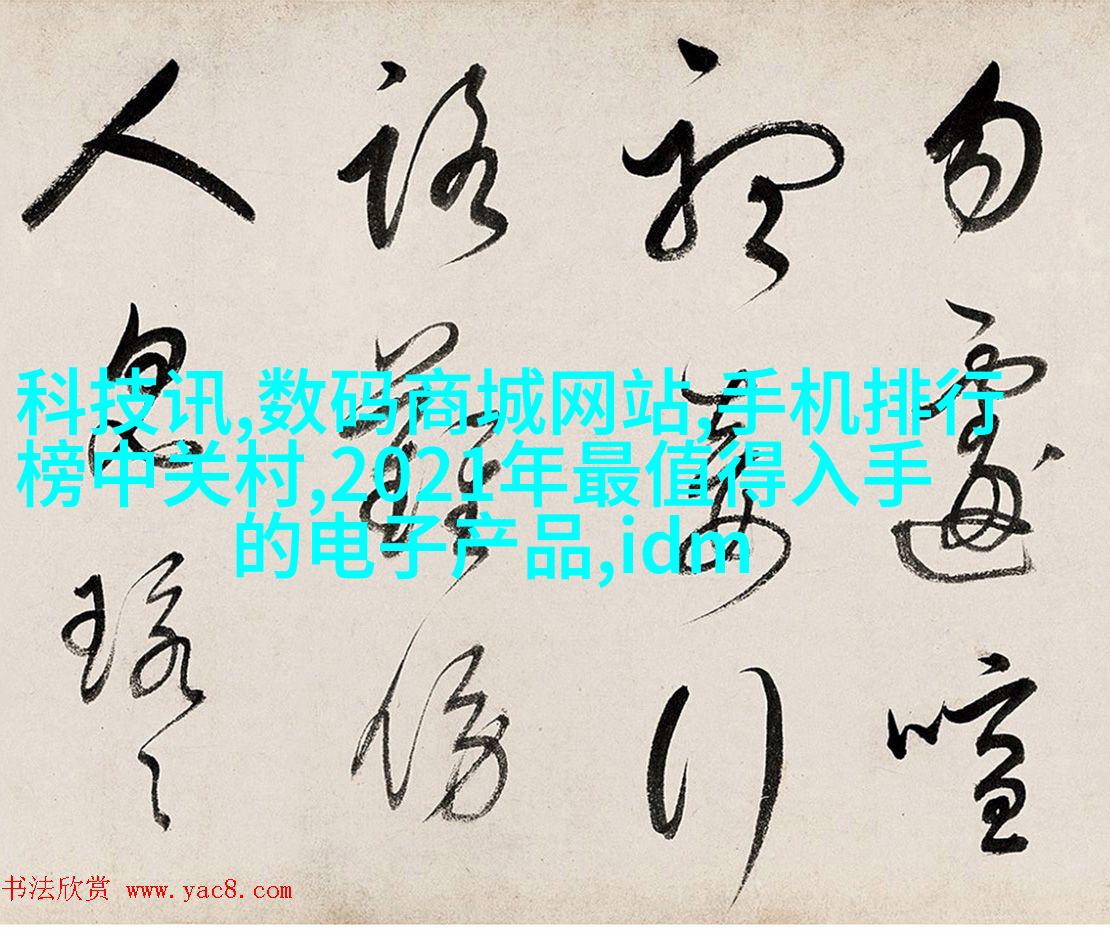 勿遽喧
聽妾行
路難傍
人
科技讯,数码商城网站,手机排行
榜中关村,2021年最值得入手
的电子产品,idm
书法欣赏 www.yac8.com